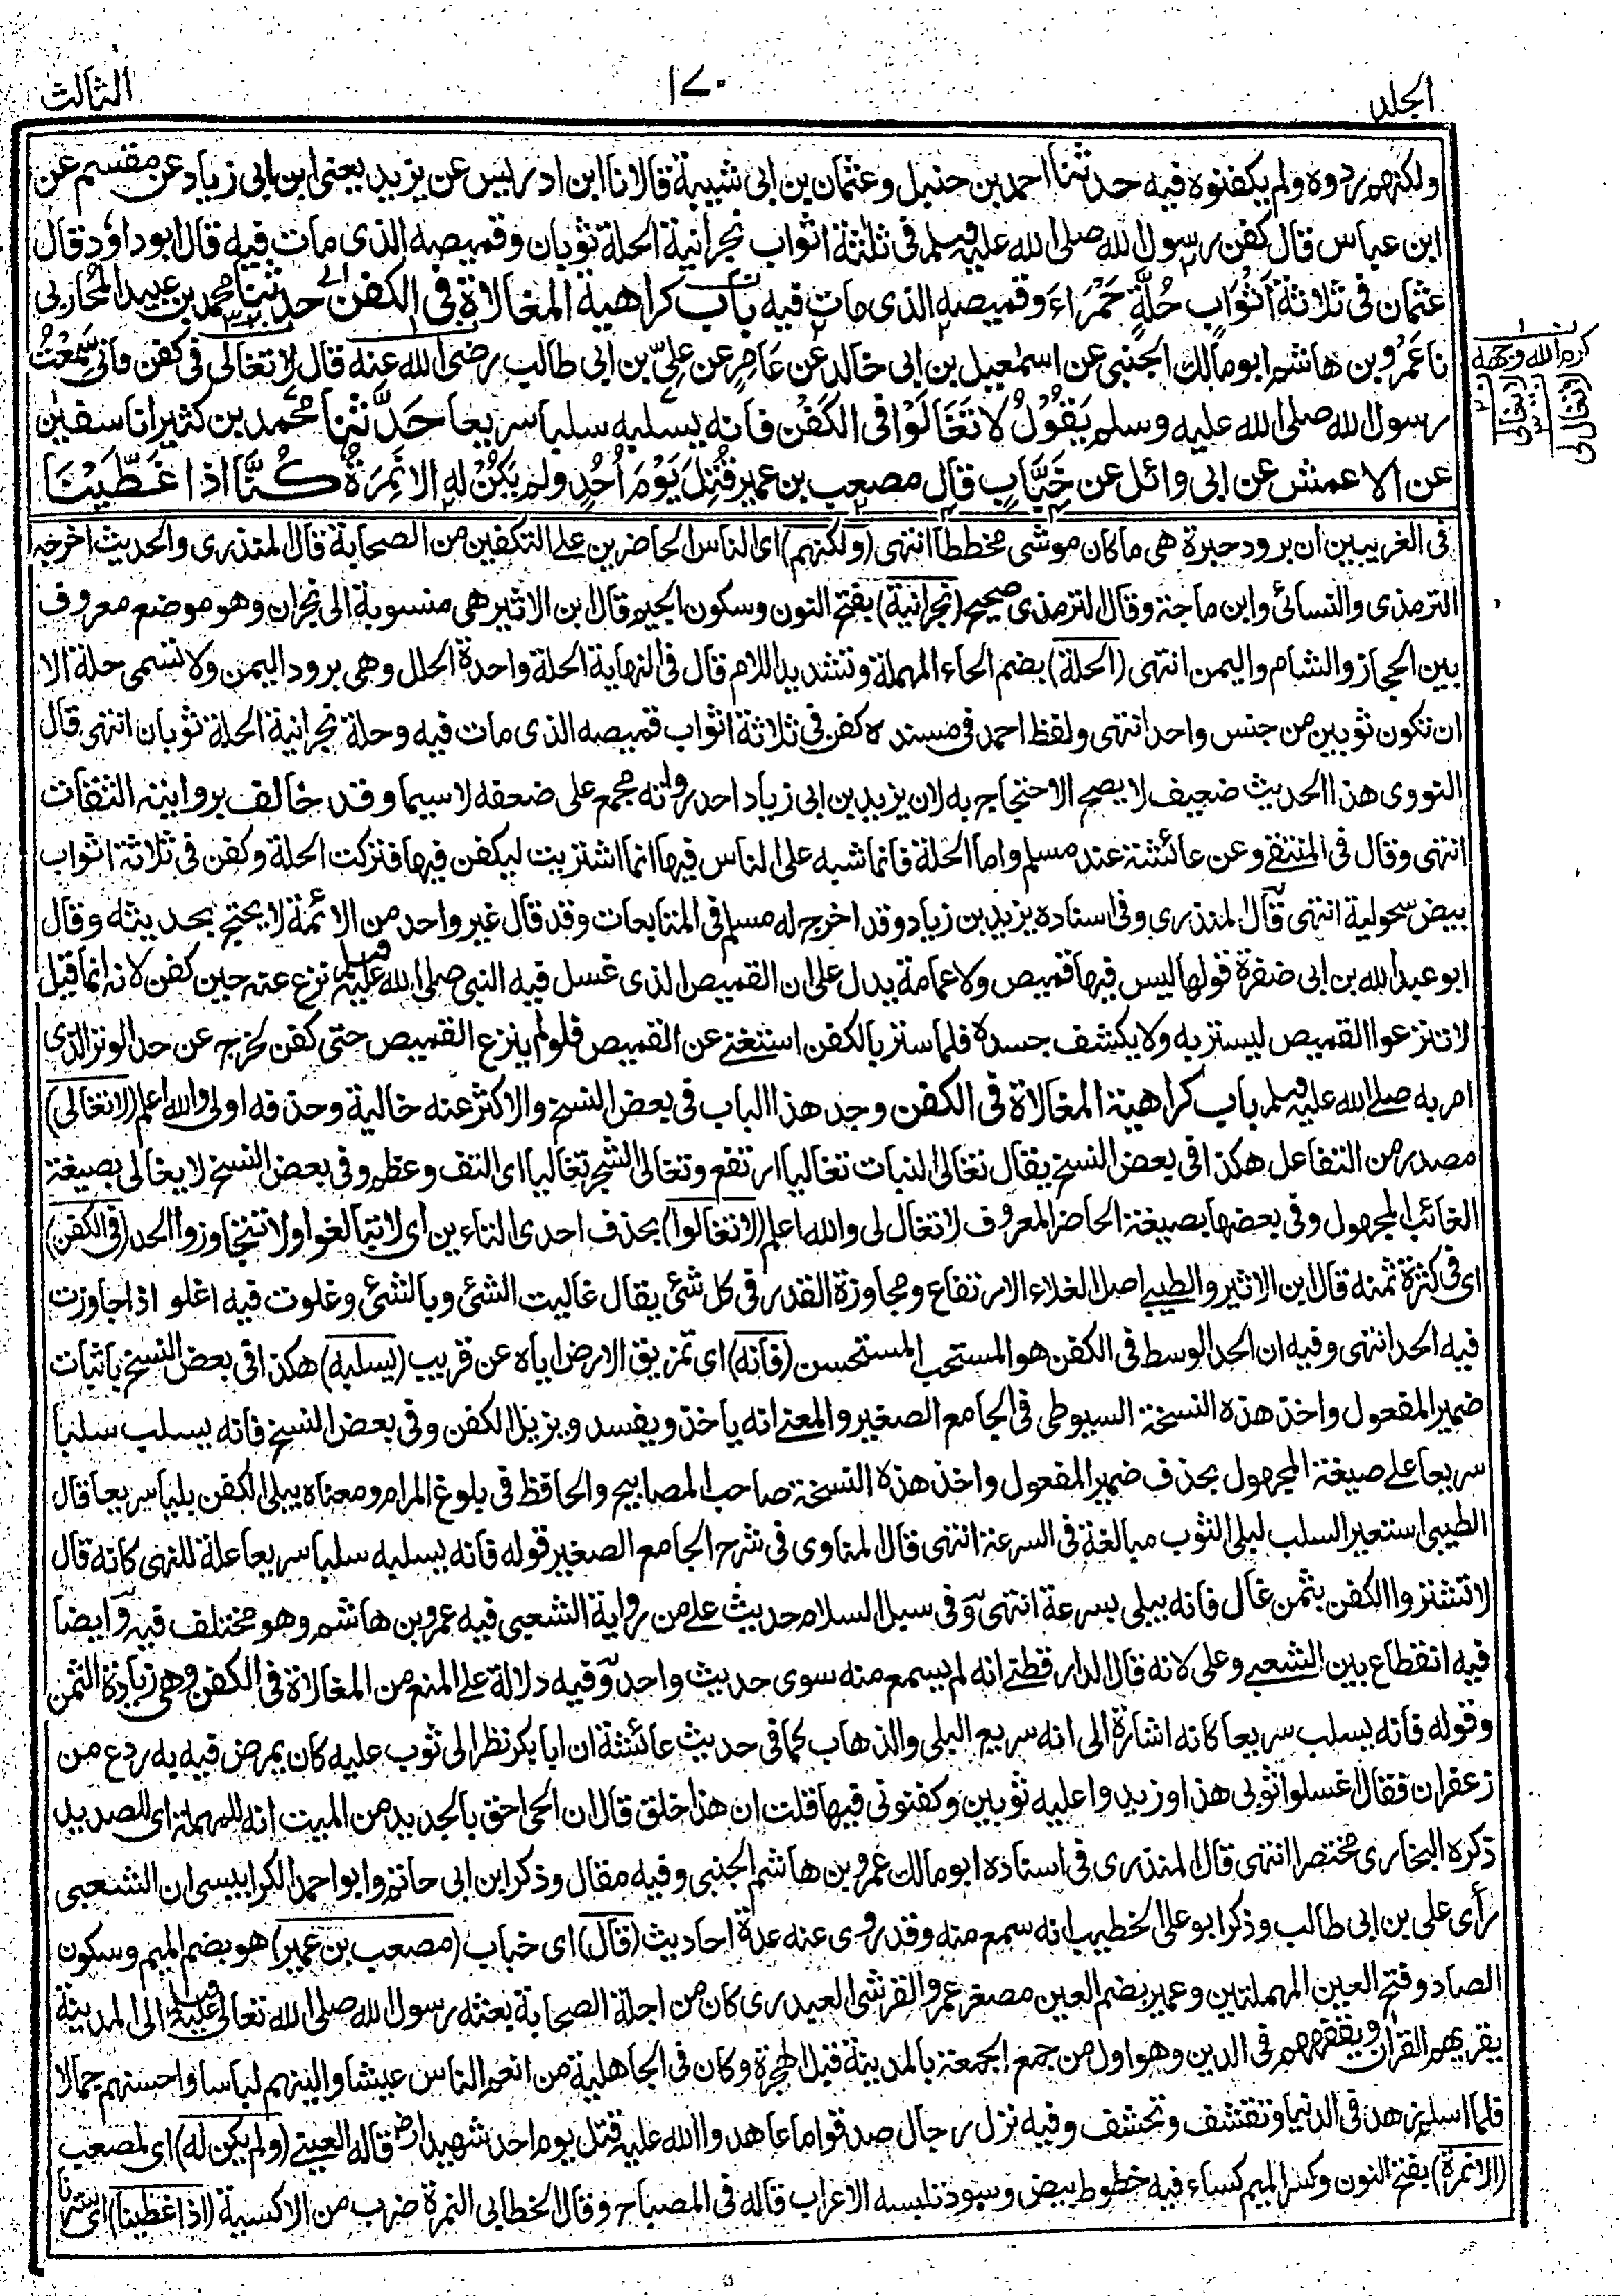 الجلد
١٧٠
الثالث
ولكنهم ردوه ولم يكفنوه فيه حدثنا احمد بن حنبل وعثمان بن ابى شيبة قالا نا ابن ادريس عن يزيد يعنى ابن ابى زياد عن مقسم عن
ابن عباس قال كفن رسول الله صلى الله عليه وسلم فى ثلثة اثواب نجرانية الحلة ثوبان وقميصه الذى مات فيه قال ابو داود قال
عثمان فى ثلاثة اَثْوَابٍ حُلَّةٍ حَمْرَاءَ وقميصه الذى مات فيه باب كراهية المغالاة فى الكفن حدثنا محمد بن عبيد المُحَاربى
نا عَمرو بن هاشم ابو مالك الجنبى عن اسمٰعيل بن ابى خالد عن عَامِرٍ عن عَلِىّ بن ابى طالب رضى الله عنه قال لا تغالى فى كفن فانى سَمِعْتُ
رسول الله صلى الله عليه وسلم يَقُوْلُ لَا تَغَالَوْا فى الكَفَنِ فانه يسلبه سلبا سريعا حَدَّثنا محمد بن كثير انا سفين
عن الاعمش عن ابى وائل عن خَبَّابٍ قال مصعب بن عمير قُتِلَ يَوْمَ اُحُدٍ ولم يَكُنْ له الا نَمِرَةٌ كُنَّا اذا غَطَّيْنَا
كرم الله وجهه
لا يغالى
لا تغالى لى
فى الغريبين ان برود حبرة هى ما كان موشى مخططا انتهى (ولكنهم) اى الناس الحاضرين على التكفين من الصحابة قال المنذرى والحديث اخرجه
الترمذى والنسائى وابن ماجة وقال الترمذى صحيح (نجرانية) بفتح النون وسكون الجيم قال ابن الاثير هى منسوبة الى نجران وهو موضع معروف
بين الحجاز والشام واليمن انتهى (الحلة) بضم الحاء المهملة وتشديد اللام قال فى النهاية الحلة واحدة الحلل وهى برود اليمن ولا تسمى حلة الا
ان تكون ثوبين من جنس واحد انتهى ولفظ احمد فى مسنده كفن فى ثلاثة اثواب قميصه الذى مات فيه وحلة نجرانية الحلة ثوبان انتهى قال
النووى هذا الحديث ضعيف لا يصح الاحتجاج به لان يزيد بن ابى زياد احد رواته مجمع على ضعفه لا سيما وقد خالف بروايته الثقات
انتهى وقال فى المنتقے وعن عائشة عند مسلم واما الحلة فانما شبه على الناس فيها انما اشتريت ليكفن فيها فتركت الحلة وكفن فى ثلاثة اثواب
بيض سحولية انتهى قال المنذرى وفى اسناده يزيد بن زياد وقد اخرج له مسلم فى المتابعات وقد قال غير واحد من الائمة لا يحتج بحديثه وقال
ابو عبد الله بن ابى صفرة قولها ليس فيها قميص ولا عمامة يدل على ان القميص الذى غسل فيه النبى صلى الله عليه وسلم نزع عنه حين كفن لانه انما قيل
لا تنزعوا القميص ليستر به ولا يكشف جسده فلما ستر بالكفن استغنے عن القميص فلو لم ينزع القميص حتى كفن لخرج عن حد الوتر الذى
امر به صلے الله عليه وسلم باب كراهية المغالاة فى الكفن وجد هذا الباب فى بعض النسخ والاكثر عنه خالية وحذفه اولى والله اعلم (لا تغالى)
مصدر من التفاعل هكذا فى بعض النسخ يقال تغالى النبات تغاليا ارتفع وتغالى الشجر تغاليا اى التف وعظم وفى بعض النسخ لا يغالى بصيغة
الغائب المجهول وفى بعضها بصيغة الحاضر المعروف لا تغال لى والله اعلم (لا تغالوا) بحذف احدى التاءين اى لا تتبالغوا ولا تتجاوزوا الحد (فى الكفن)
اى فى كثرة ثمنه قال ابن الاثير والطيبے اصل الغلاء الارتفاع ومجاوزة القدر فى كل شئ يقال غاليت الشئ وبالشئ وغلوت فيه اغلو اذا جاوزت
فيه الحد انتهى وفيه ان الحد الوسط فى الكفن هو المستحب المستحسن (فانه) اى تمزيق الارض اياه عن قريب (يسلبه) هكذا فى بعض النسخ باثبات
ضمير المفعول واخذ هذه النسخة السيوطى فى الجامع الصغير والمعنے انه ياخذ ويفسد ويزيل الكفن وفى بعض النسخ فانه يسلب سلبا
سريعا علے صيغة المجهول بحذف ضمير المفعول واخذ هذه النسخة صاحب المصابيح والحافظ فى بلوغ المرام ومعناه يبلى الكفن بليا سريعا قال
الطيبى استعير السلب لبلى الثوب مبالغة فى السرعة انتهى قال المناوى فى شرح الجامع الصغير قوله فانه يسلبه سلبا سريعا علة للنهى كانه قال
لا تشتروا الكفن بثمن غال فانه يبلى بسرعة انتهى وفى سبل السلام حديث على من رواية الشعبى فيه عمرو بن هاشم وهو مختلف فيه وايضا
فيه انقطاع بين الشعبے وعلى لانه قال الدارقطنے انه لم يسمع منه سوى حديث واحد وفيه دلالة علے المنع من المغالاة فى الكفن وهى زيادة الثمن
وقوله فانه يسلب سريعا كانه اشارة الى انه سريع البلى والذهاب كما فى حديث عائشة ان ابا بكر نظر الى ثوب عليه كان يمرض فيه به ردع من
زعفران فقال اغسلوا ثوبى هذا وزيدوا عليه ثوبين وكفنونى فيها قلت ان هذا خلق قال ان الحى احق بالجديد من الميت انه للمهملة اى للصديد
ذكره البخارى مختصرا انتهى قال المنذرى فى اسناده ابو مالك عمرو بن هاشم الجنبى وفيه مقال وذكر ابن ابى حاتم وابو احمد الكرابيسى ان الشعبى
رأى على بن ابى طالب وذكر ابو على الخطيب انه سمع منه وقد روى عنه عدة احاديث (قال) اى خباب (مصعب بن عمير) هو بضم الميم وسكون
الصاد وفتح العين المهملتين وعمير بضم العين مصغر عمرو القرشى العبدرى كان من اجلة الصحابة بعثه رسول الله صلى الله تعالى عليه وسلم الى المدينة
يقريهم القرآن ويفقههم فى الدين وهو اول من جمع الجمعة بالمدينة قبل الهجرة وكان فى الجاهلية من انعم الناس عيشا والينهم لباسا واحسنهم جمالا
فلما اسلم زهد فى الدنيا وتقشف وتحشف وفيه نزل رجال صدقوا ما عاهدوا الله عليه قتل يوم احد شهيدا قاله العينے (ولم يكن له) اى لمصعب
(الا نمرة) بفتح النون وكسر الميم كساء فيه خطوط بيض وسود تلبسه الاعراب قاله فى المصباح وقال الخطابى النمرة ضرب من الاكسية (اذا غطينا) اى سترنا